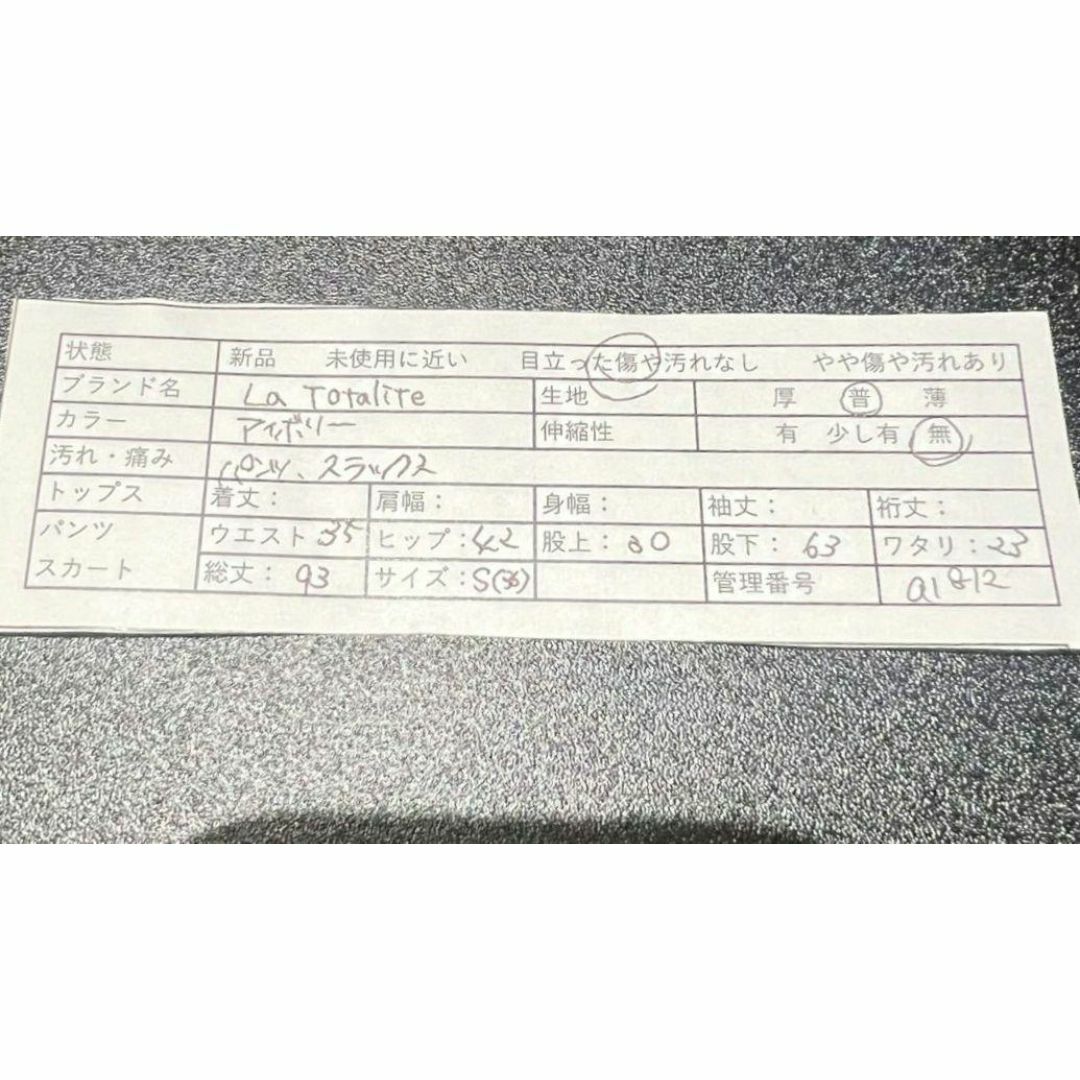 状態 新品 未使用に近い 目立った傷や汚れなし やや傷や汚れあり
ブランド名 La Totalite 生地 厚 普 薄
カラー アイボリー 伸縮性 有 少し有 無
汚れ・痛み パンツ、スラックス
トップス 着丈: 肩幅: 身幅: 袖丈: 裄丈:
パンツ ウエスト 35 ヒップ:42 股上:30 股下:63 ワタリ:23
スカート 総丈:93 サイズ:S(36) 管理番号 a1812